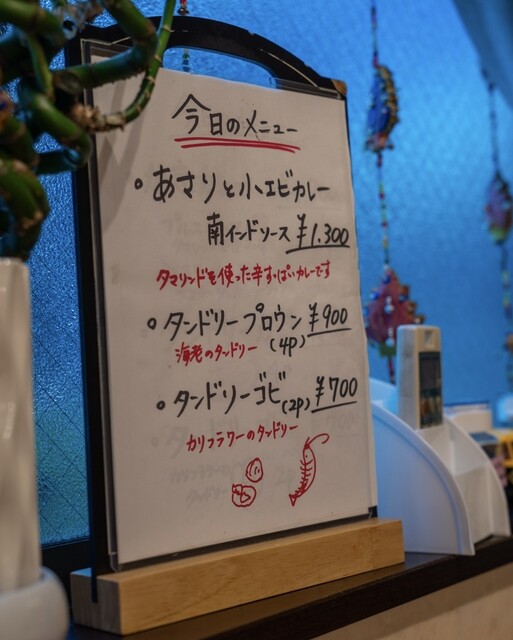 今日のメニュー
・あさりと小エビカレー
南インドソース ¥1.300
タマリンドを使った辛すっぱいカレーです
・タンドリープロウン ¥900
海老のタンドリー (4P)
・タンドリーゴビ (2P) ¥700
カリフラワーのタンドリー